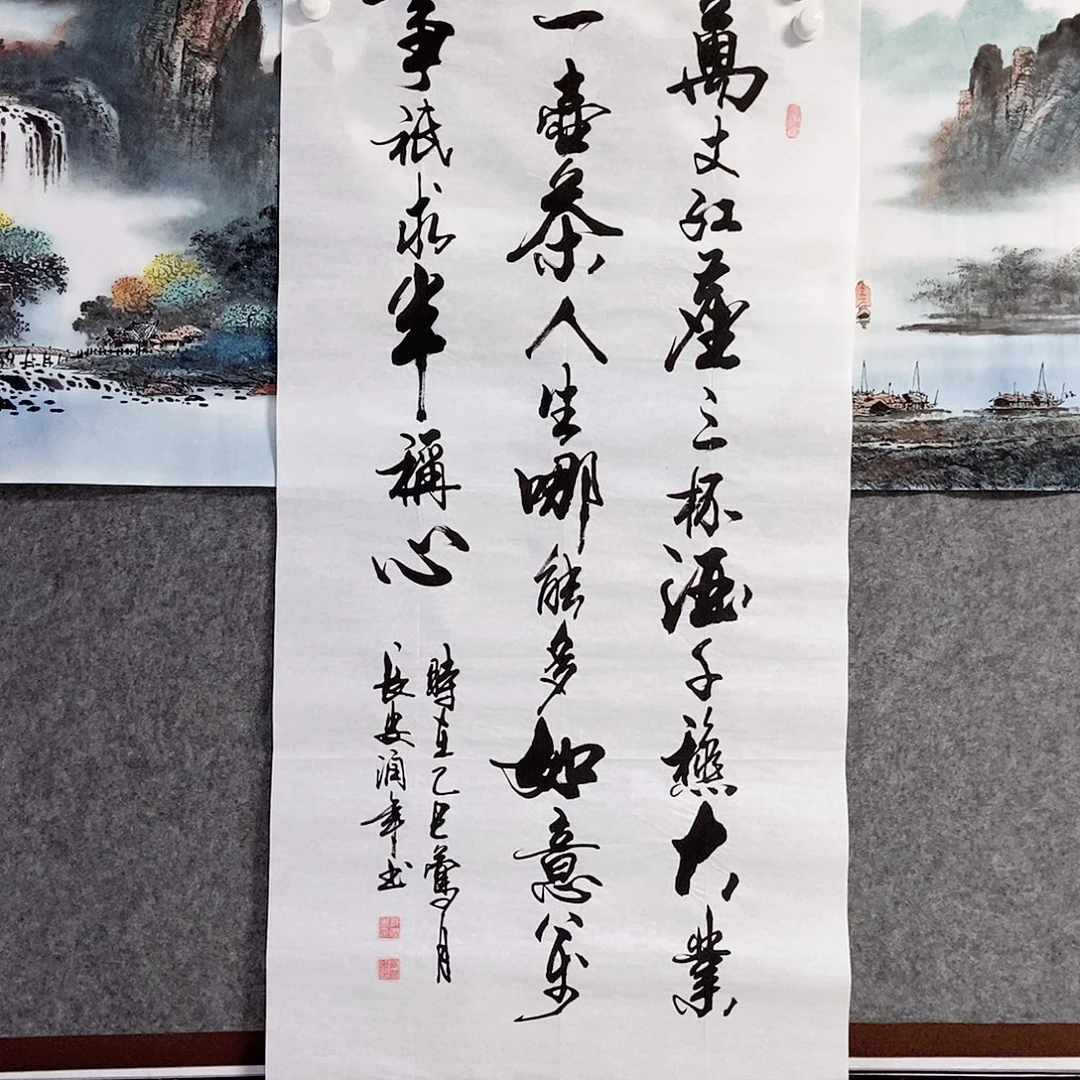 萬丈紅塵三杯酒千穐大業
一壺茶人生哪能多如意萬
事祇求半稱心
時在乙巳鶯月
長安潤年书